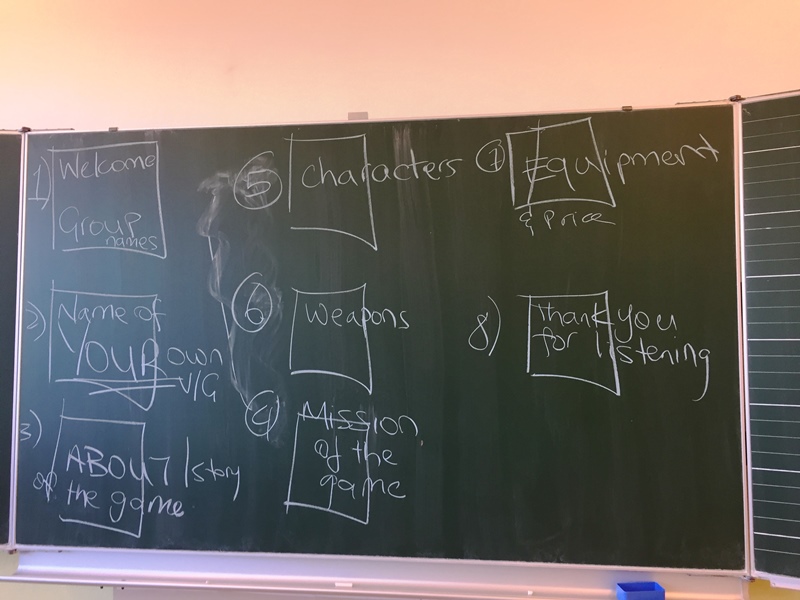 1) Welcome
Group
names
2) Name of
YOUR own
V/G
3) ABOUT / story
of the game
5 Characters
6 Weapons
4 Mission
of the
game
7 Equipment
& Price
8) Thank you
for listening